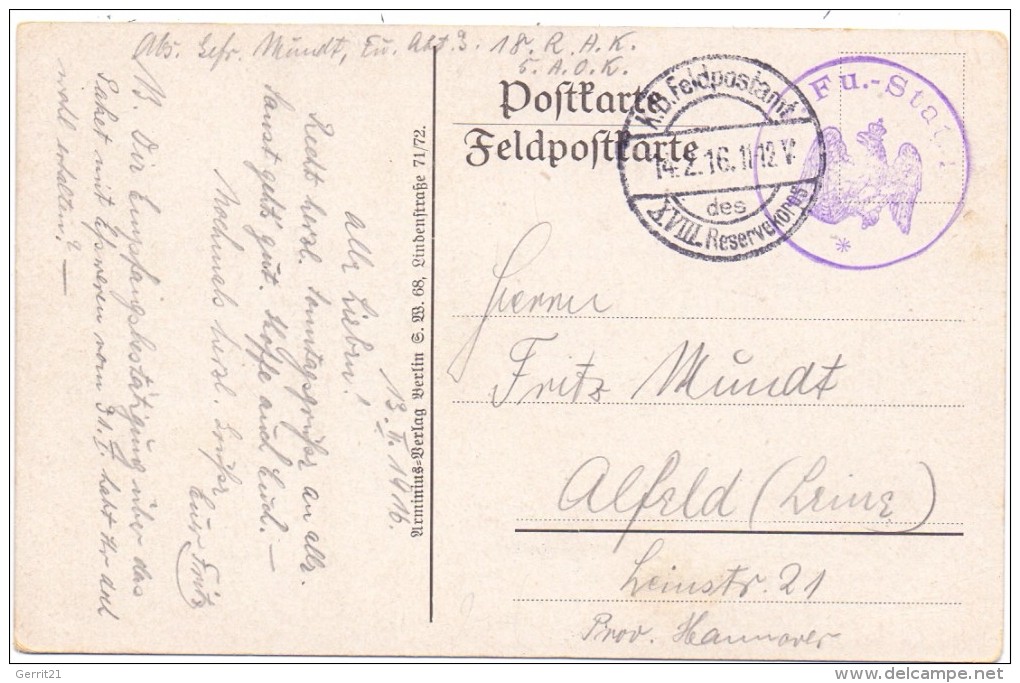 Abs. Gefr. Mundt, Fu. Abt. 3. 18. R. A. K.
5. A.O.K.
Postkarte
Feldpostkarte
K.D. Feldpostamt
14.2.16.11-12 V.
des
XVIII. Reservekorps
Fu.-Stat.
*
Herrn
Fritz Mundt
Alfeld (Leine)
Leinstr. 21
Prov. Hannover
Arminius-Verlag Berlin S. W. 68, Lindenstraße 71/72.
13. II. 1916.
Alle Lieben!
Recht herzl. Sonntagsgrüße an alle.
Sonst geht's gut. Hoffe auch Euch. —
Nochmals herzl. Grüße
Euer Fritz
N3. Die Empfangsbestätigung über das
Paket mit vom 31. I. habt Ihr doch
wohl erhalten? —
Gerrit21
delcampe.net